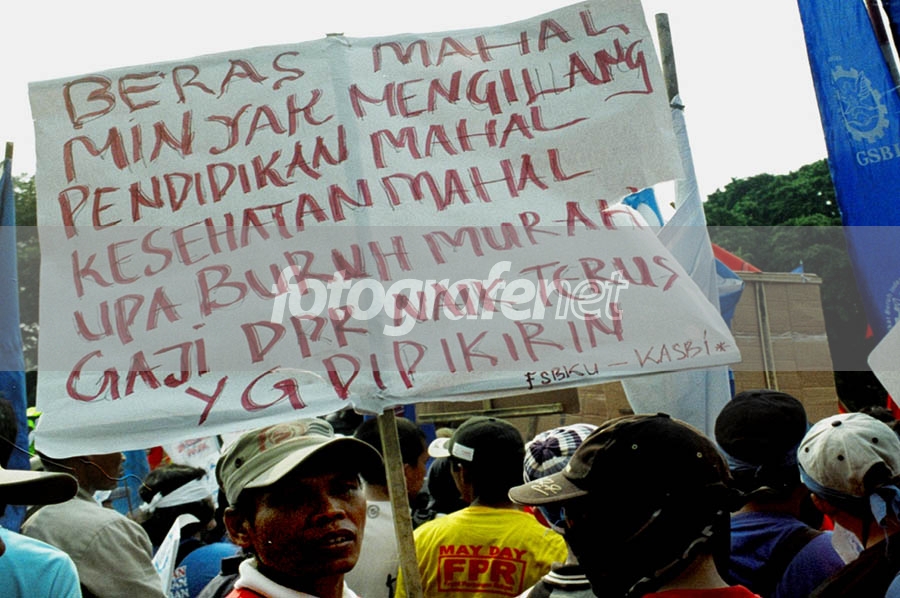 BERAS MAHAL
MINYAK MENGILANG
PENDIDIKAN MAHAL
KESEHATAN MAHAL
UPA BURUH MURAH
GAJI DPR NAIK TERUS
YG DIPIKIRIN
FSBKU - KASBI *
fotografenet
GSBI
MAY DAY
FPR